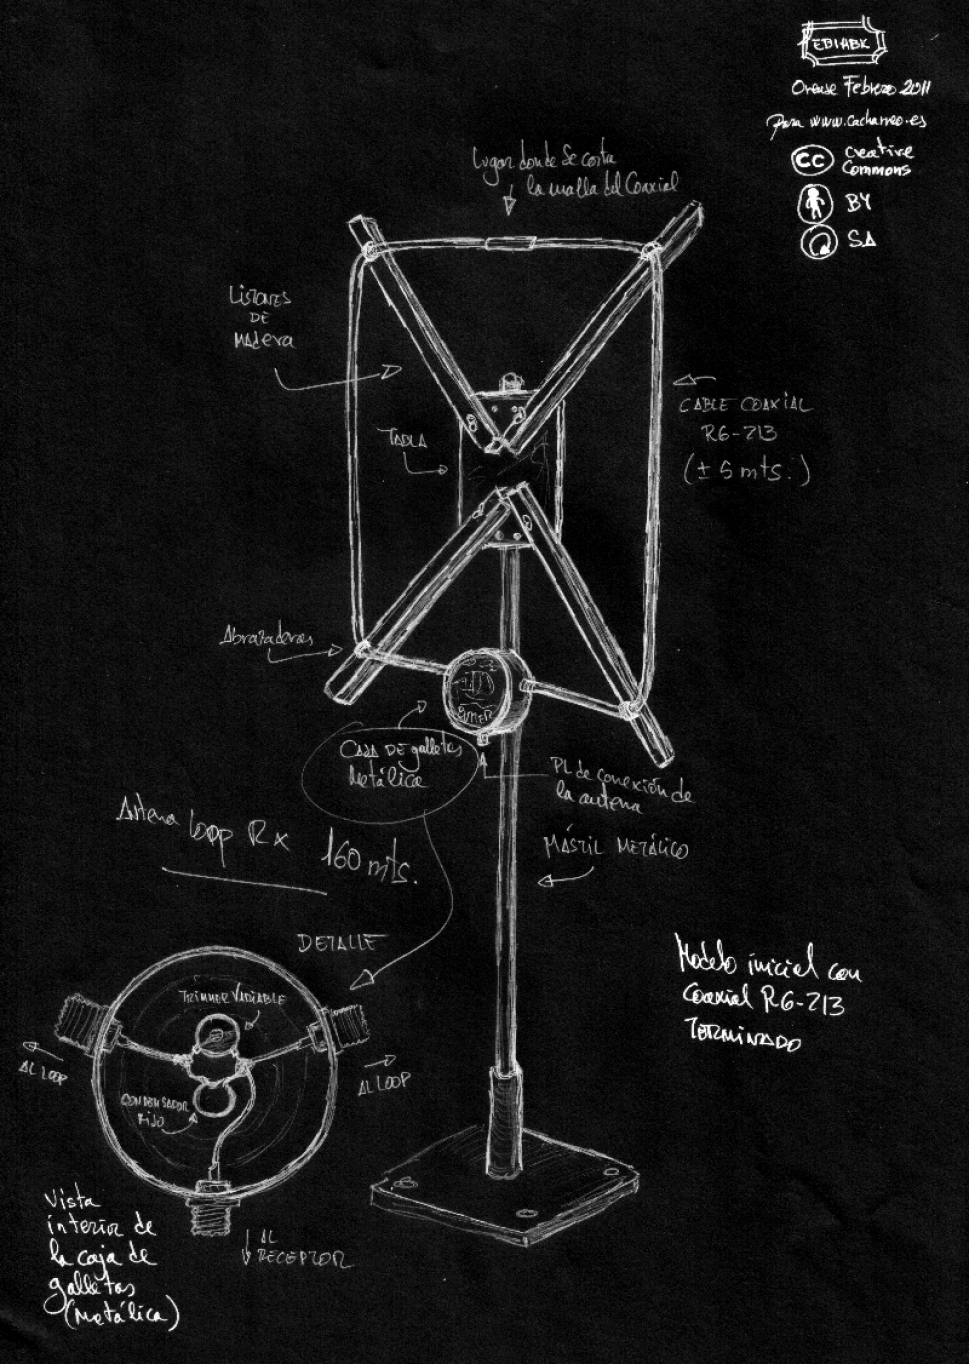 EB1HBK
Orense Febrero 2011
Para www.cacharreo.es
cc Creative
Commons
BY
SA
Lugar donde Se corta
la malla del Coaxial
LISTONES
DE
MADERA
CABLE COAXIAL
RG-213
(± 5 mts.)
TABLA
Abrazaderas
CAJA DE galletas
Metálica
PL de conexión de
la antena
Antena loop Rx 160 mts.
MÁSTIL METÁLICO
DETALLE
Modelo inicial con
Coaxial RG-213
TERMINADO
TRIMMER VARIABLE
AL LOOP
AL LOOP
CONDENSADOR
FIJO
Vista
interior de
la caja de
galletas
(metálica)
AL
RECEPTOR